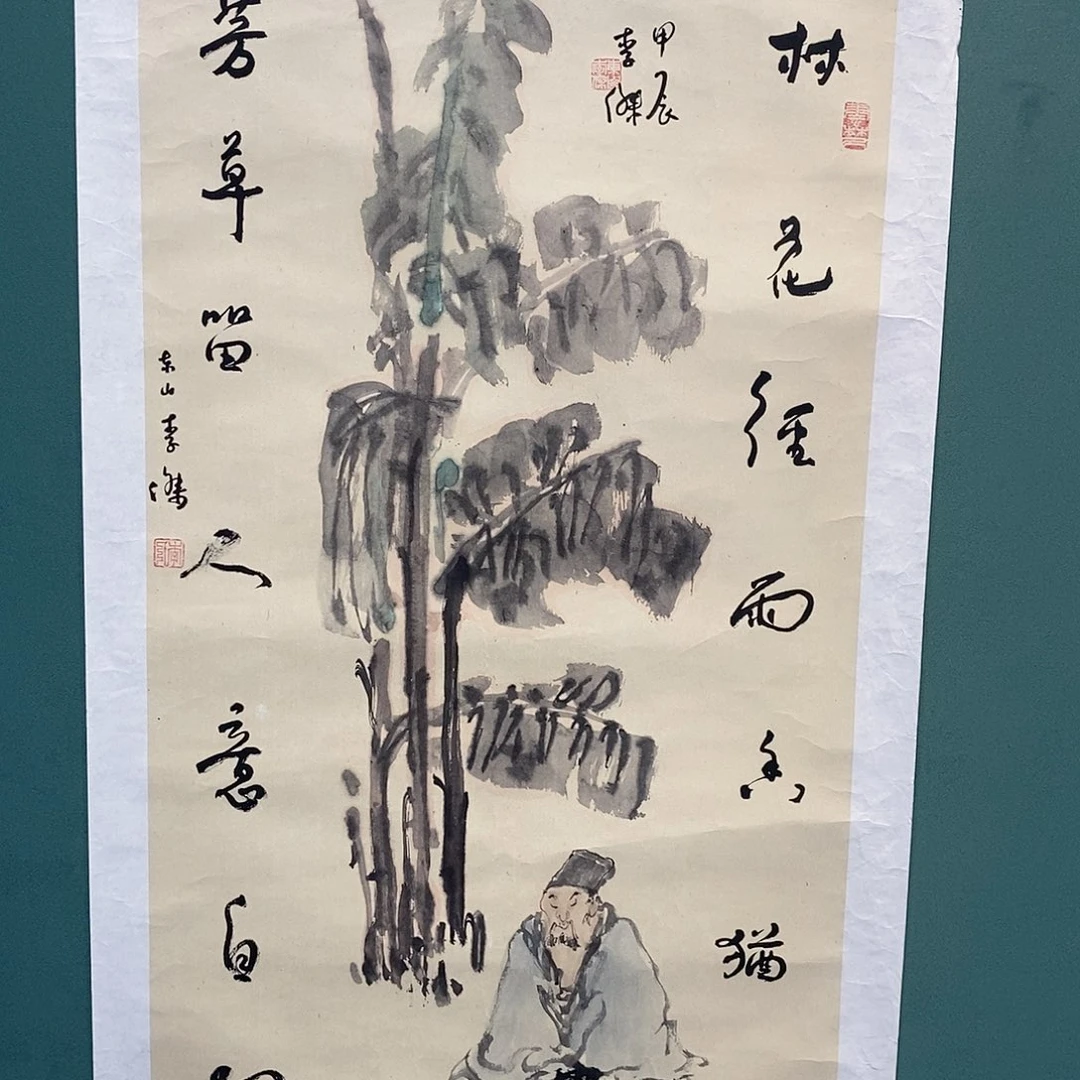 林花經雨香猶
甲辰
李傑
芳草留人意自
東山李傑